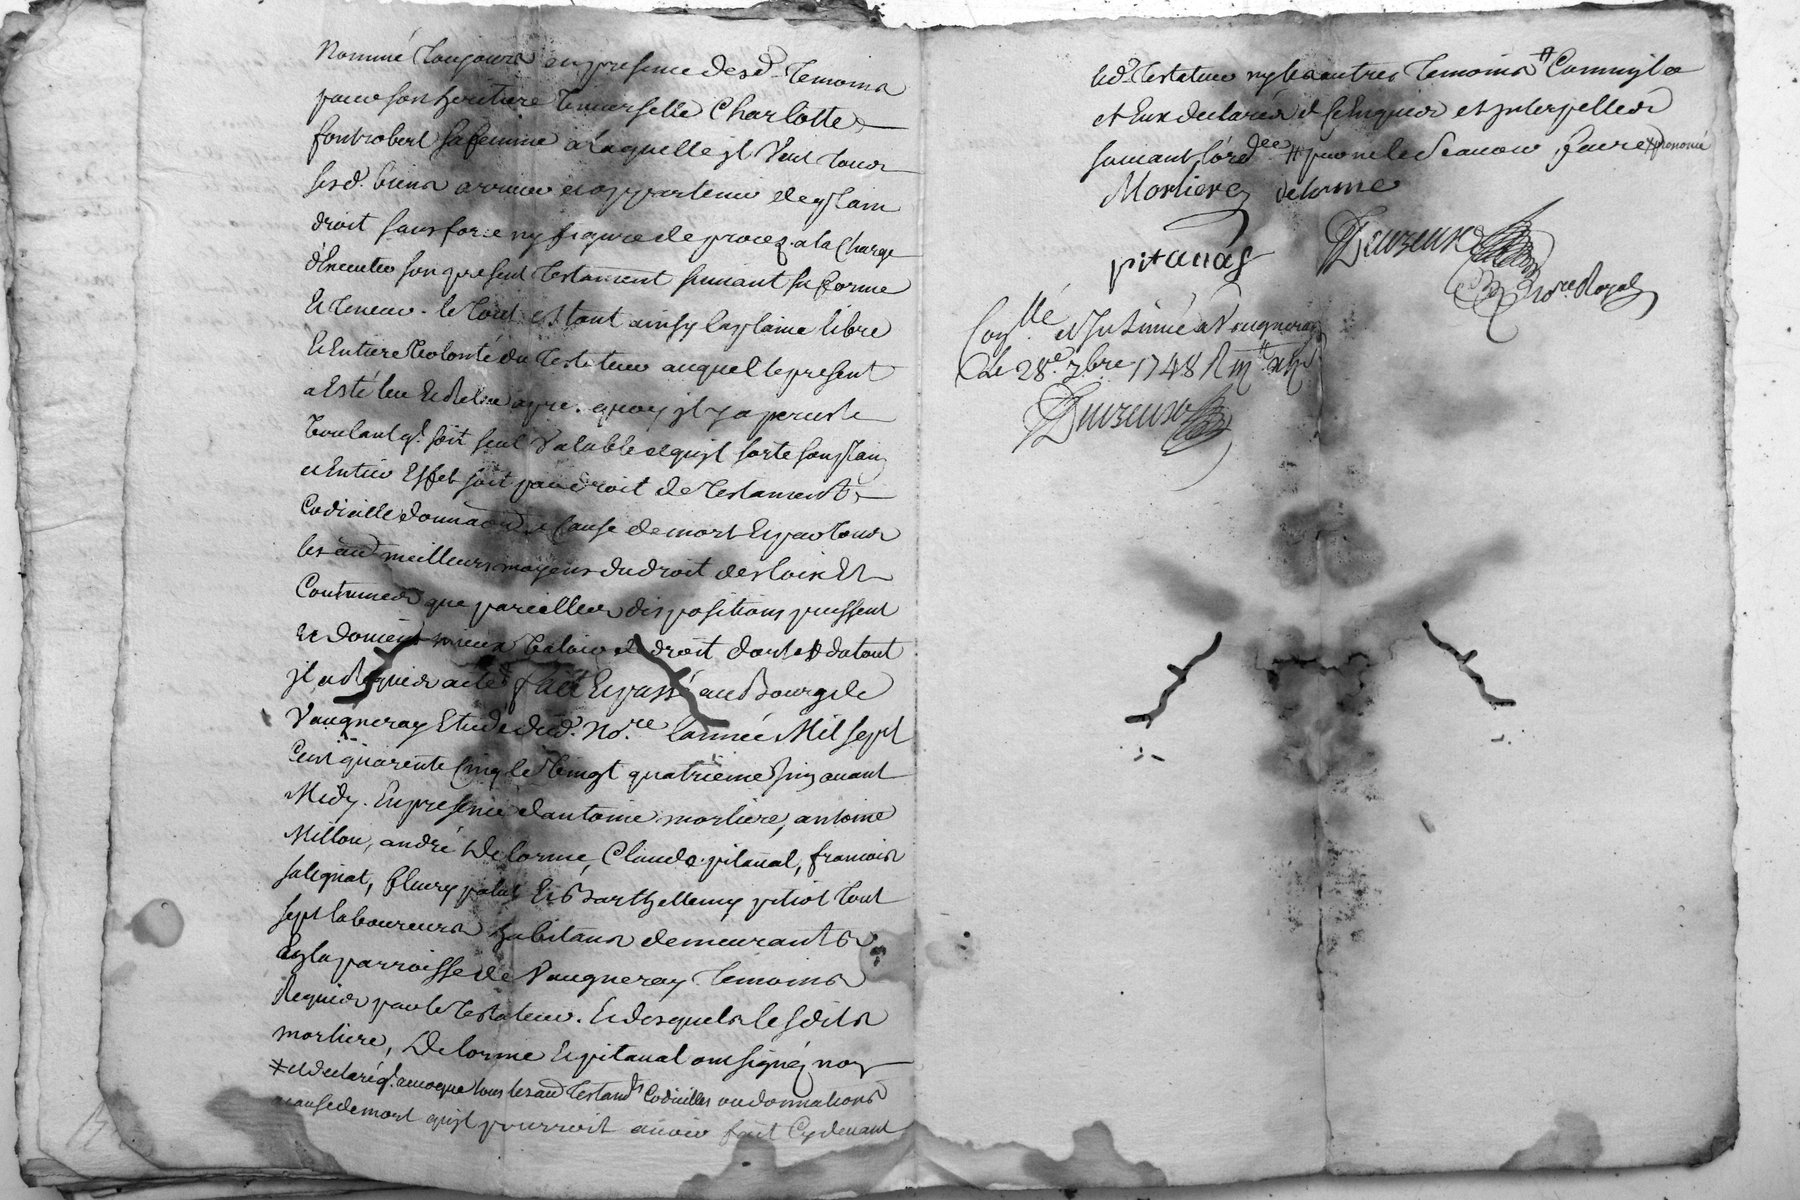 Nommé toujours en presence desd. temoins
pour son heritiere universelle Charlotte
fontrobert sa femme a laquelle jl veut tous
sesd. biens arriver et appartenir de plain
droit sans forme ny figure de procez a la charge
d'Executer son present testament suivant sa forme
Et teneur. le tout estant ainsy la plaine libre
Et Entiere volonté du testateur auquel le present
a Esté leu Et Releu apres quoy jl y a persisté
voulant ql. soit seul valable et qujl sorte son plain
et Entier Effet soit par droit de testament
Codicille donnaon a Cause de mort Et par tous
les au meilleurs moyens du droit des loix Et
Coutumes que pareilles dispositions puissent
et doivent mieux valoir de droit dont et du tout
jl a Requis acte fait Et passé au Bourg de
Vaugneray Etude dud. No.re l'année Mil sept
Cent quarente Cinq le vingt quatrieme Juin avant
Midy. En presence d'antoine morliere, antoine
Millon, andré Delorme, Claude pitaval, francois
salignat, fleury Et Barthellemy pitiot tout
sept laboureurs habitans demeurants
En la parroisse de Vaugneray temoins
Requis par le testateur. Et desquels lesdits
morliere, Delorme Et pitaval ont signéz non
# et declaré ql. revoque tous les au testam.ts Codicilles ou donnations
a cause de mort qu'jl pourroit avoir fait Cy devant
led. testateur ny les autres temoins #
et Eux declarés de Ce Enquis et Interpellés
suivant l'ord.ce # pour ne le scavoir faire
Morlierez delorme
pitaval
No.re Royal
Con.llé et Insinué a Vaugneray
le 28.e 7bre 1748 R